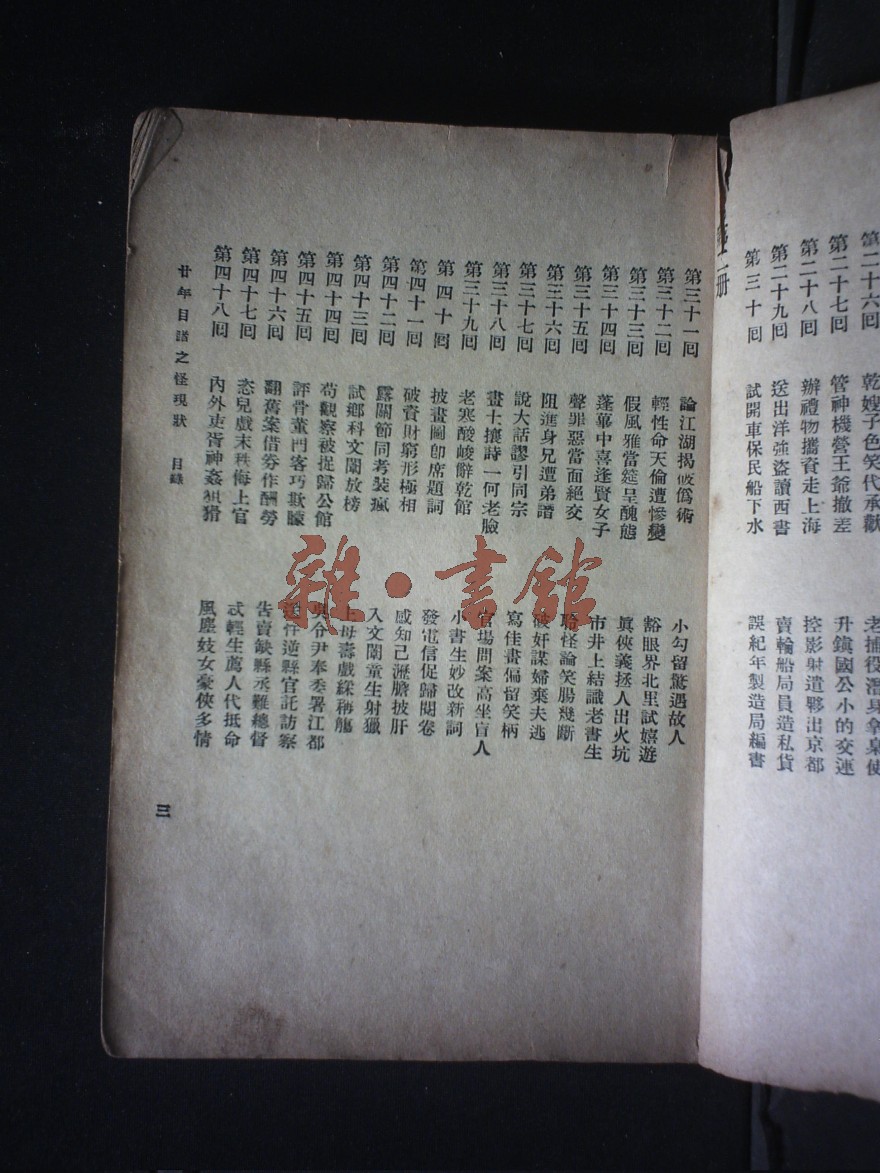 第二十六回 乾嫂子色笑代承歡
第二十七回 管神機營王爺撤差 升鎮國公小的交運
第二十八回 辦禮物攜資走上海 控影射遣夥出京都
第二十九回 送出洋強盜讀西書 賣輪船局員造私貨
第三十回 試開車保民船下水 誤紀年製造局編書
冊
第三十一回 論江湖揭破僞術 小勾留驚遇故人
第三十二回 輕性命天倫遭慘變 豁眼界北里試嬉遊
第三十三回 假風雅當筵呈醜態 眞俠義拯人出火坑
第三十四回 蓬蓽中喜逢賢女子 市井上結識老書生
第三十五回 聲罪惡當面絕交 聆怪論笑腸幾斷
第三十六回 阻進身兄遭弟譖 破奸謀婦棄夫逃
第三十七回 說大話謬引同宗 寫佳畫偏留笑柄
第三十八回 畫士攘詩一何老臉 官場問案高坐盲人
第三十九回 老寒酸峻辭乾館 小書生妙改新詞
第四十回 披畫圖卽席題詞 發電信促歸閱卷
第四十一回 破資財窮形極相 感知己瀝膽披肝
第四十二回 露關節同考裝瘋 入文闈童生射獵
第四十三回 試鄉科文闈放榜 上母壽戲綵稱觴
第四十四回 苟觀察被捉歸公館 吳令尹奉委署江都
第四十五回 評骨董門客巧欺矇 送忤逆縣官託訪察
第四十六回 翻舊案借券作酬勞 告賣缺縣丞難總督
第四十七回 恣兒戲末秩侮上官 忒輕生薦人代抵命
第四十八回 內外吏胥神姦狙猾 風塵妓女豪俠多情
廿年目譜之怪現狀 目錄
三
雜·書館